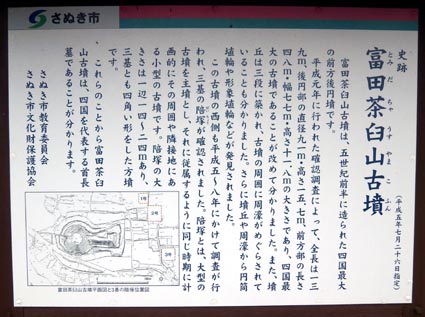 さぬき市
史跡
富田茶臼山古墳
とみだちゃうすやまこふん
(平成五年七月二十六日指定)
富田茶臼山古墳は、五世紀前半に造られた四国最大
の前方後円墳です。
平成元年に行われた確認調査によって、全長は一三
九m、後円部の直径九一m・高さ一五・七m、前方部の長さ
四八m・幅七七m・高さ十一・八mの大きさであり、四国最
大の古墳であることが改めて分かりました。また、墳
丘は三段に築かれ、古墳の周囲に周濠がめぐらされて
いることも分かりました。さらに墳丘や周濠から円筒
埴輪や形象埴輪などが発見されました。
この古墳の西側も平成五〜八年にかけて調査が行
われ、三基の陪塚が確認されました。陪塚とは、大型の
古墳を主墳とし、それに従属するように同じ時期に計
画的にその周囲や隣接地にあ
る小型の古墳です。陪塚の大
きさは一辺一四〜二四mあり、
三基とも四角い形をした方墳
です。
これらのことから富田茶臼
山古墳は、四国を代表する首長
墓であることが分かります。
さぬき市教育委員会
さぬき市文化財保護協会
1号
2号
3号
富田茶臼山古墳平面図と3基の陪塚位置図